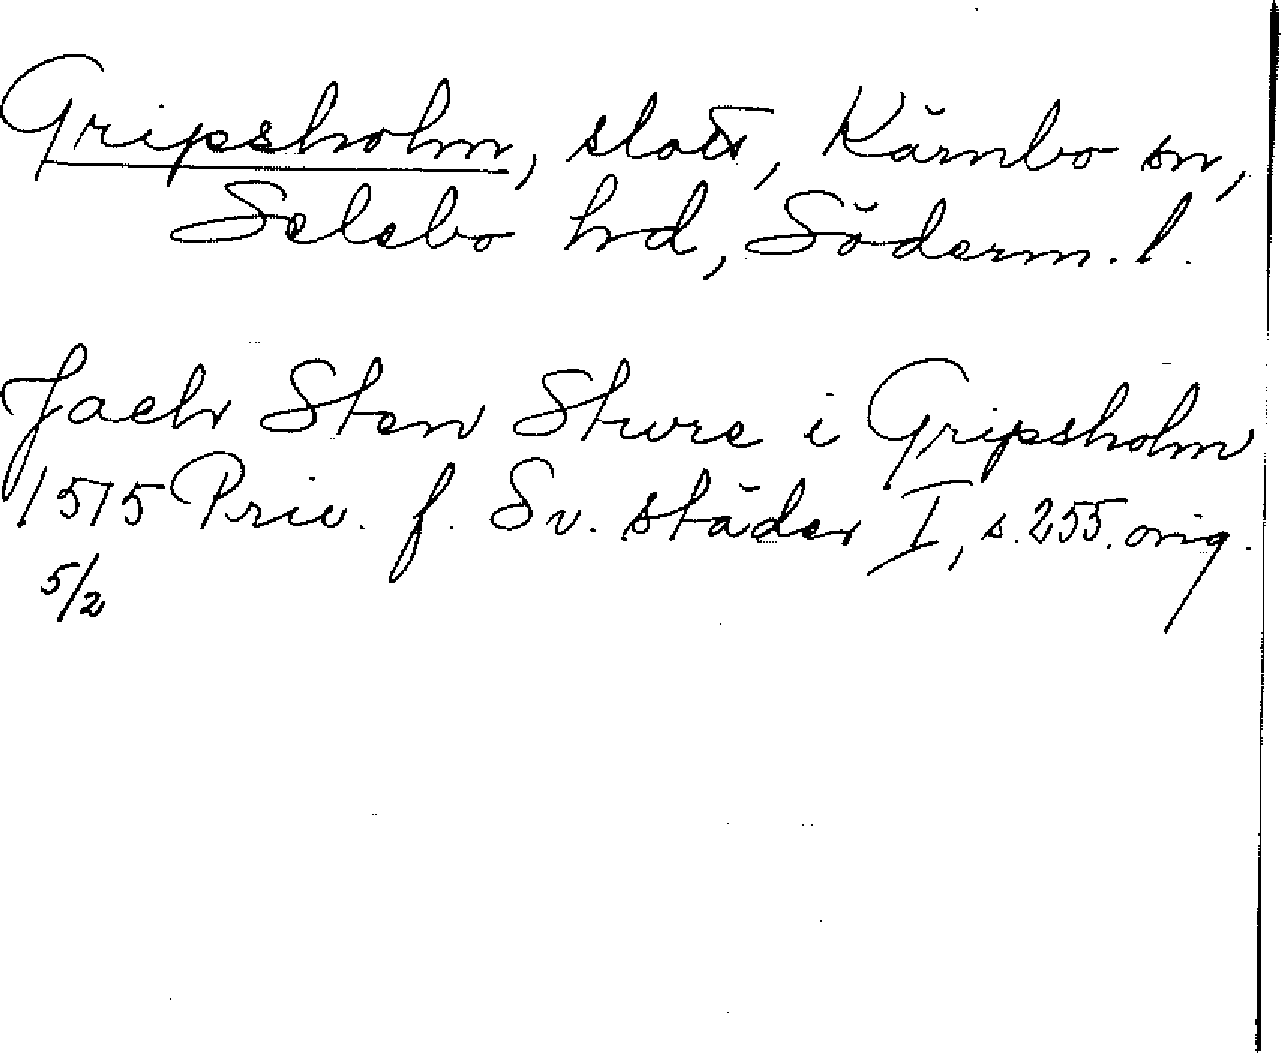 Gripsholm, slott, Kärnbo sn,
Selebo hd, Söderm. l.
Jach Sten Sture i Gripsholm
1515 Priv. f. Sv. städer I, s. 255. orig.
5/2